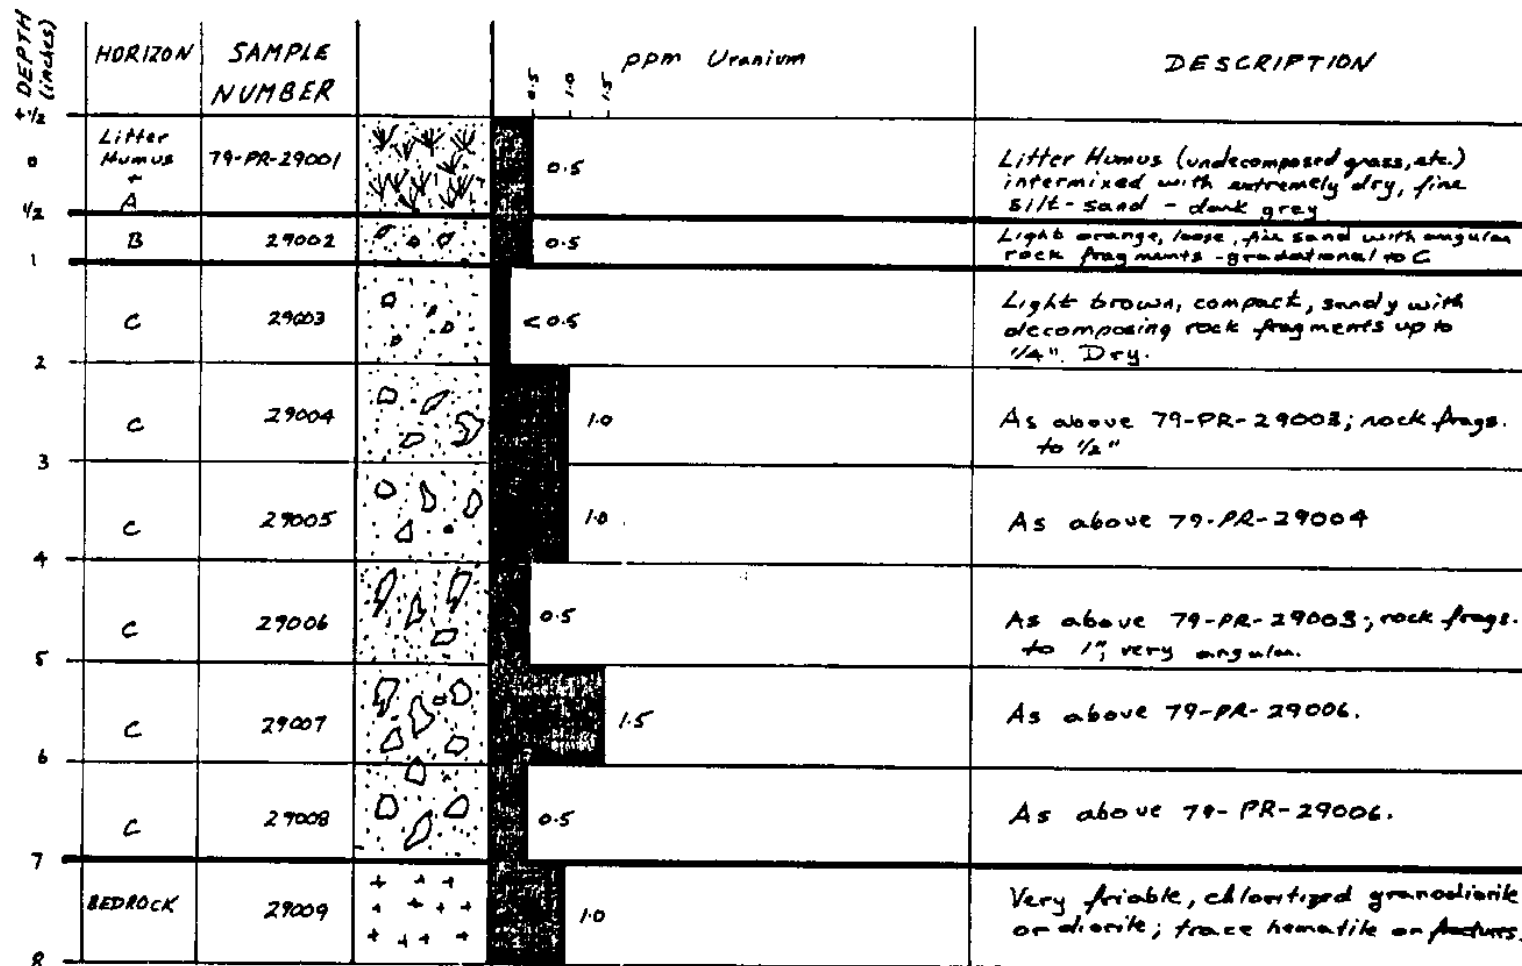 DEPTH (inches)
HORIZON
SAMPLE NUMBER
ppm Uranium
0.5 1.0 1.5
DESCRIPTION
+1/2
Litter Humus + A
79-PR-29001
0.5
Litter Humus (undecomposed grass, etc.)
intermixed with extremely dry, fine
silt-sand - dark grey
0
1/2
B
29002
0.5
Light orange, loose, fine sand with angular
rock fragments - gradational to C
1
C
29003
<0.5
Light brown, compact, sandy with
decomposing rock fragments up to
1/4". Dry.
2
C
29004
1.0
As above 79-PR-29003; rock frags.
to 1/2"
3
C
29005
1.0
As above 79-PR-29004
4
C
29006
0.5
As above 79-PR-29003; rock frags.
to 1", very angular.
5
C
29007
1.5
As above 79-PR-29006.
6
C
29008
0.5
As above 79-PR-29006.
7
BEDROCK
29009
1.0
Very friable, chloritized granodiorite
or diorite; trace hematite on fractures.
8